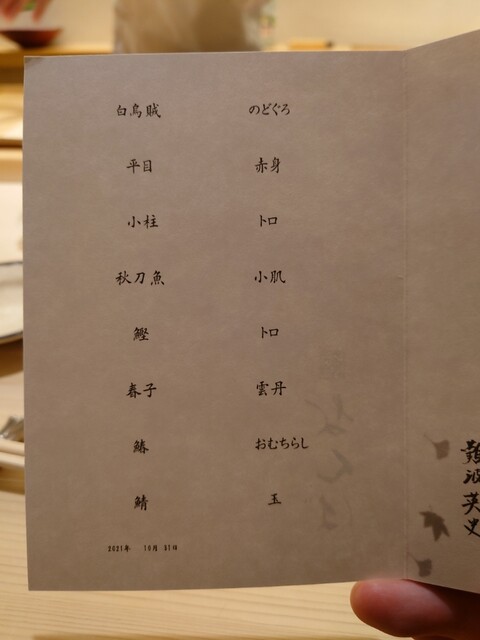 白烏賊
平目
小柱
秋刀魚
鰹
春子
鰆
鯖
のどぐろ
赤身
トロ
小肌
トロ
雲丹
おむちらし
玉
2021年 10月 31日
難波英史